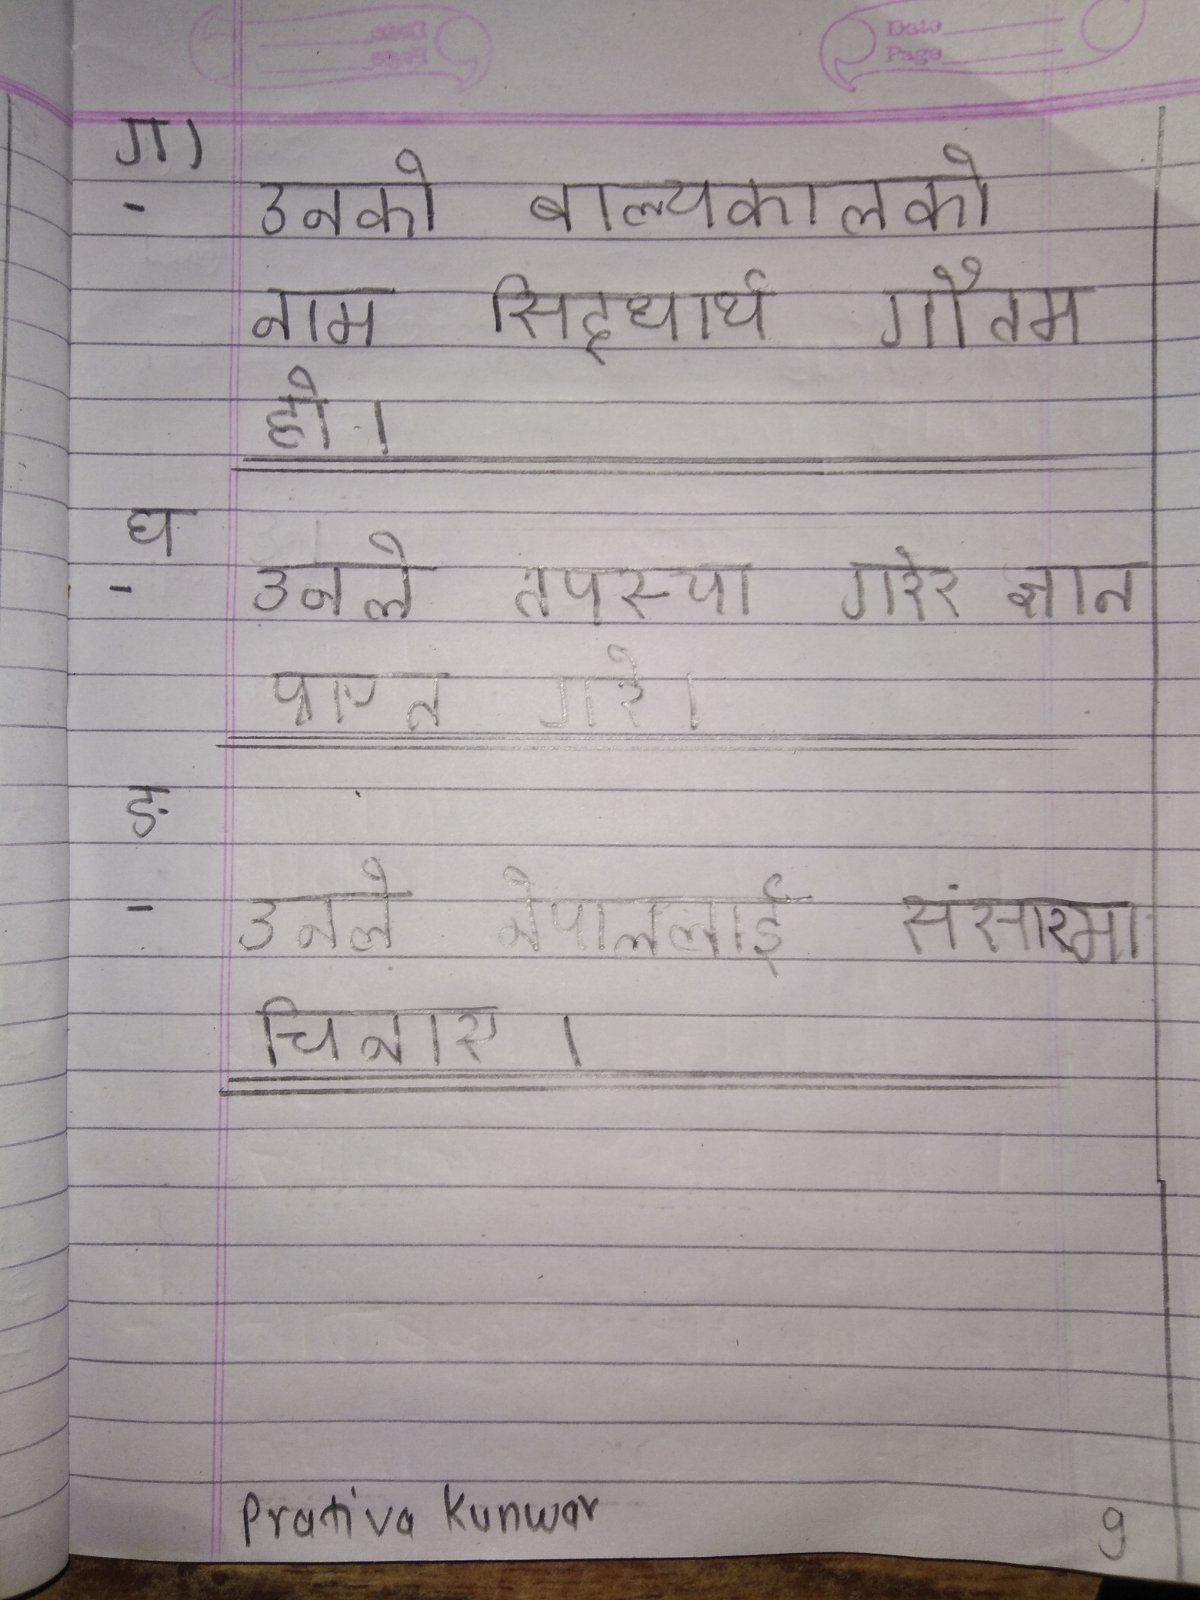 Date
Page
ग)
- उनको बाल्यकालको
नाम सिद्धार्थ गौतम
हो ।
घ
- उनले तपस्या गरेर ज्ञान
प्राप्त गरे ।
ङ
- उनले नेपाललाई संसारमा
चिनाए ।
Prativa Kunwar
9